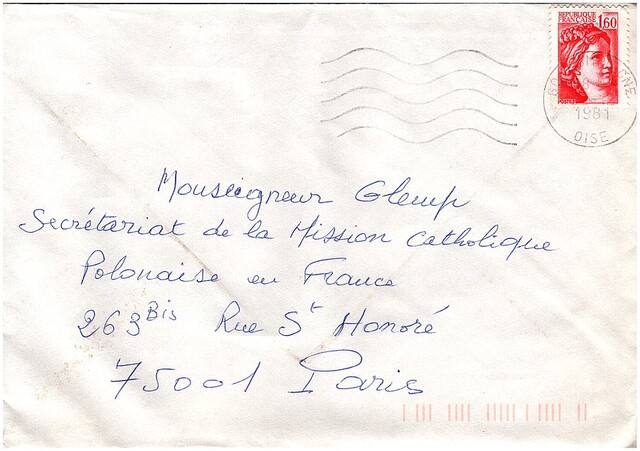 REPUBLIQUE
FRANÇAISE 1,60
60
1981
OISE
Monseigneur Glemp
Secrétariat de la Mission Catholique
Polonaise en France
263 Bis Rue St Honoré
75001 Paris